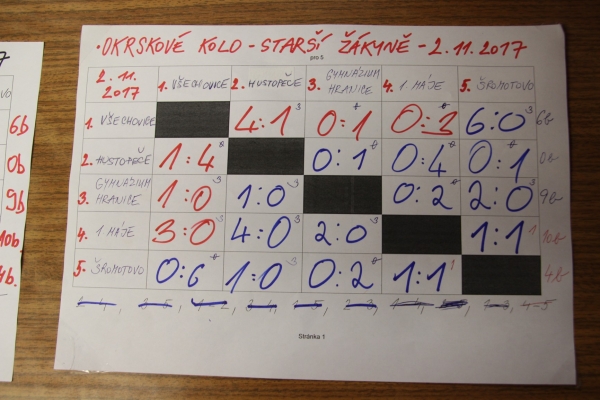 • OKRSKOVÉ KOLO - STARŠÍ ŽÁKYNĚ - 2.11.2017
pro 5
2.11. 2017 1. VŠECHOVICE 2. HUSTOPEČE 3. GYMNÁZIUM HRANICE 4. 1 MÁJE 5. ŠROMOTOVO
1. VŠECHOVICE 4:1 3 0:1 0:3 6:0 3 6b
2. HUSTOPEČE 1:4 0 0:1 0 0:4 0 0:1 0 0b
3. GYMNÁZIUM HRANICE 1:0 3 1:0 3 0:2 0 2:0 3 9b
4. 1 MÁJE 3:0 3 4:0 3 2:0 3 1:1 1 10b
5. ŠROMOTOVO 0:6 0 1:0 3 0:2 0 1:1 1 4b
Stránka 1
6b
0b
9b
10b
4b.